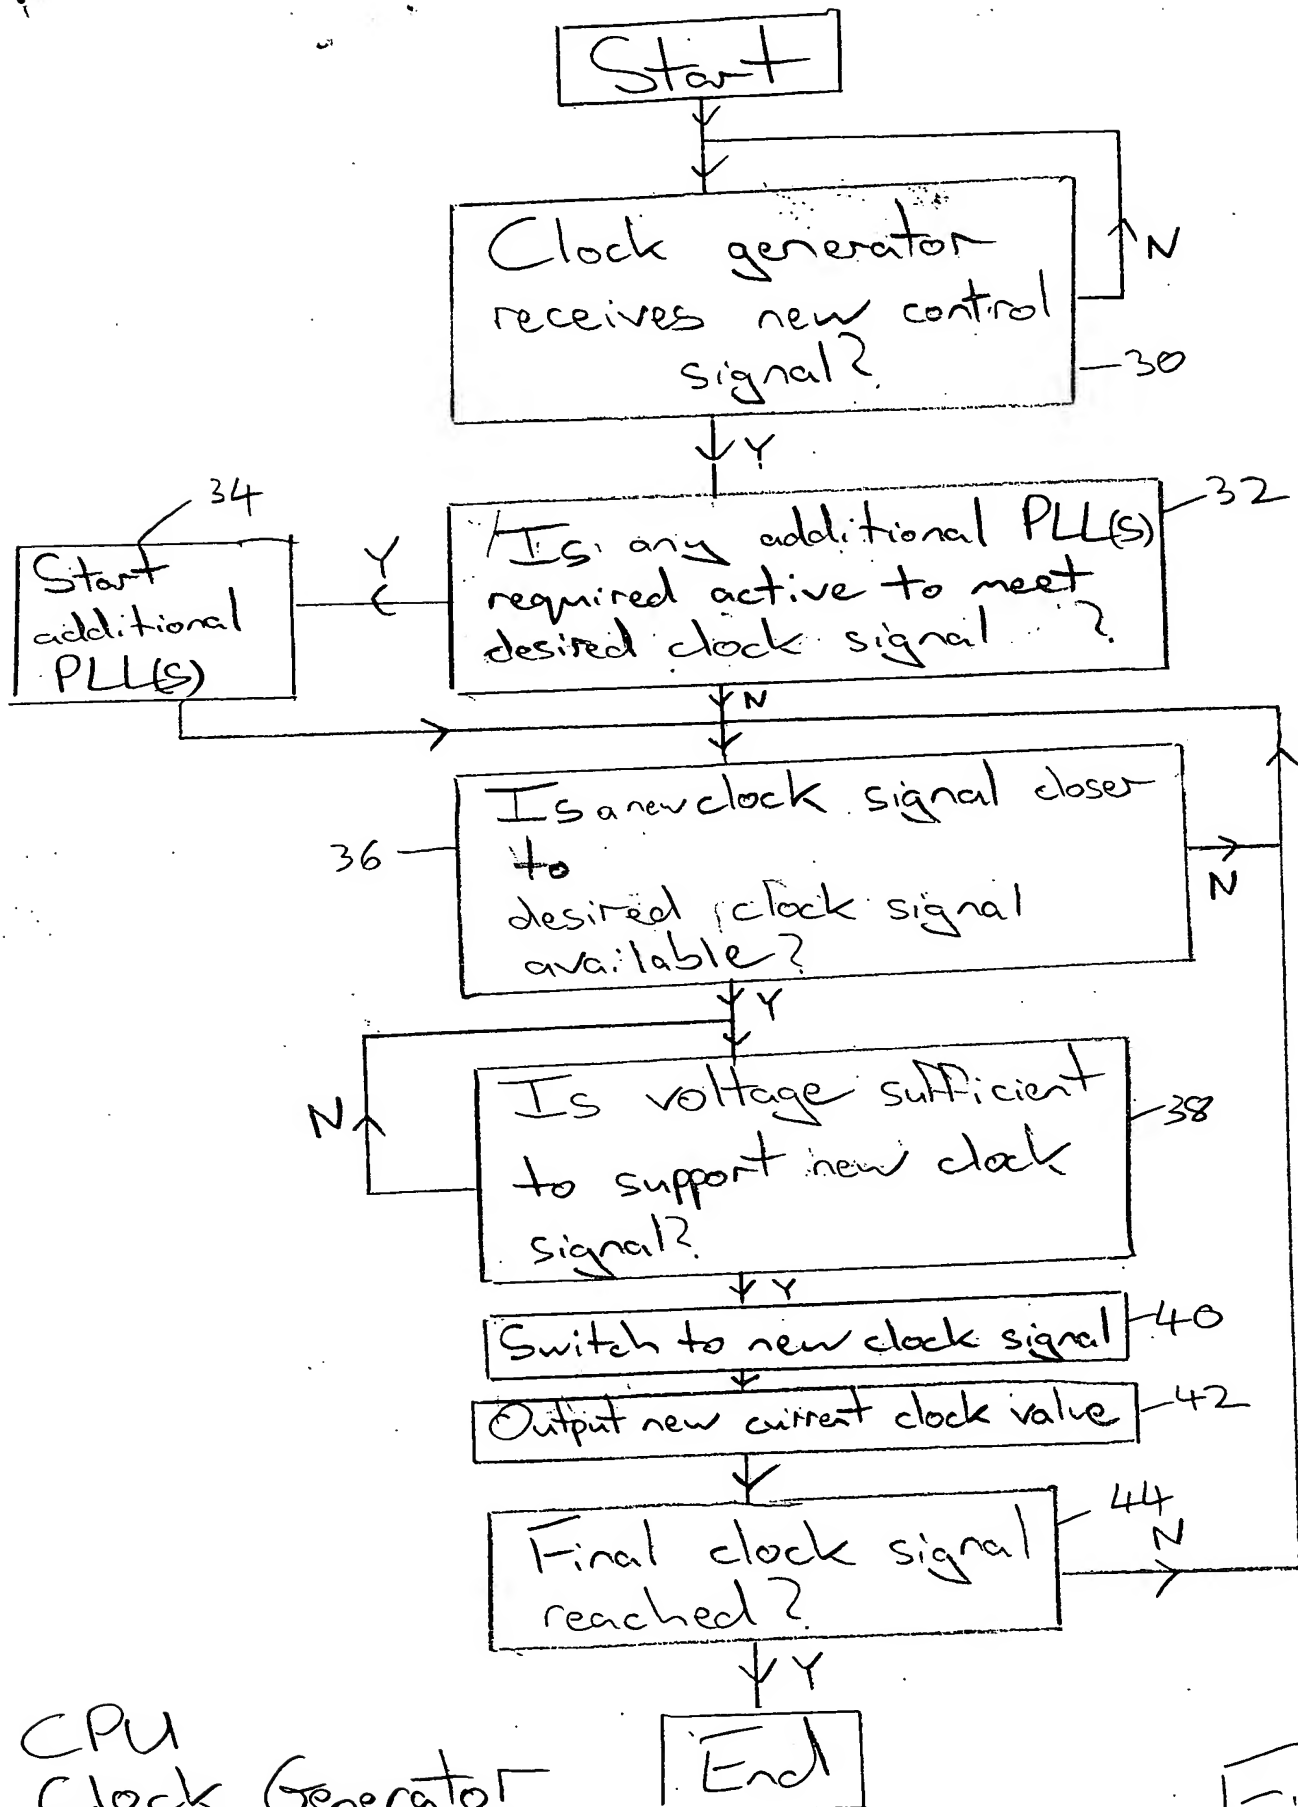 Start
Clock generator
receives new control
signal?
N
30
Y
34
32
Start
additional
PLL(S)
Y
Is any additional PLL(S)
required active to meet
desired clock signal ?
N
Is a new clock signal closer
to
desired clock signal
available?
36
N
Y
Is voltage sufficient
to support new clock
signal?
N
38
Y
Switch to new clock signal
40
Output new current clock value
42
Final clock signal
reached?
44
N
Y
End
CPU
Clock Generator